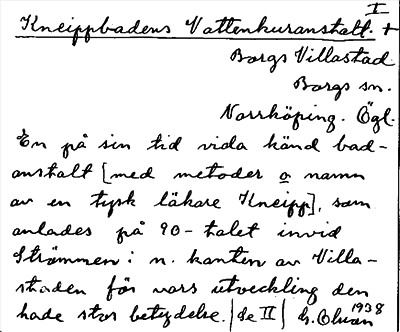 I
Kneippbadens Vattenkuranstalt. +
Borgs Villastad
Borgs sn.
Norrköping. Ögl.
En på sin tid vida känd bad-
anstalt [med metoder o namn
av en tysk läkare Kneipp], som
anlades på 90-talet invid
Strömmen i n. kanten av Villa-
staden för vars utveckling den
hade stor betydelse. |Se II| G. Olson 1938